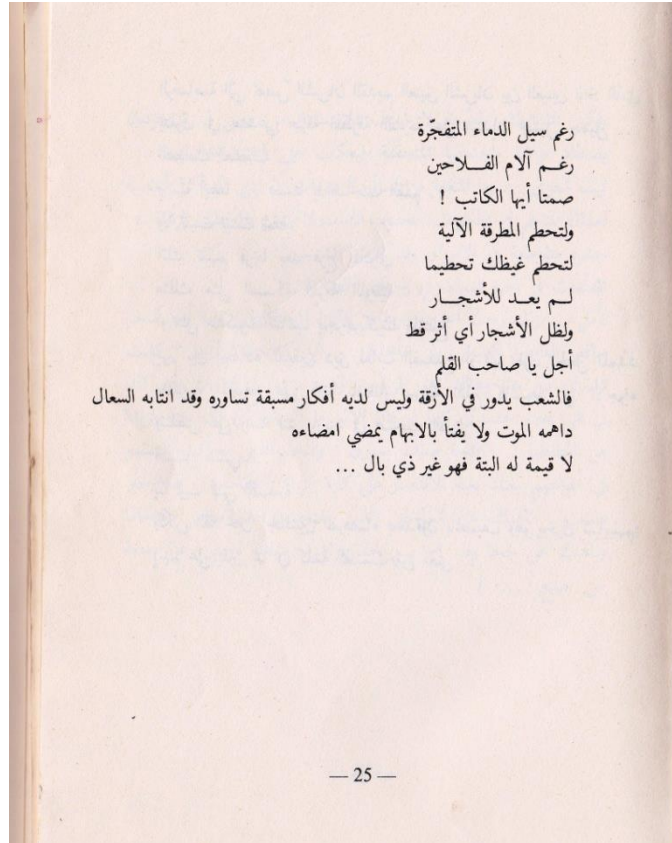 رغم سيل الدماء المتفجّرة
رغـــم آلام الفـــلاحين
صمتا أيها الكاتب !
ولتحطم المطرقة الآلية
لتحطم غيظك تحطيما
لـــم يعـــد للأشجـــار
ولظل الأشجار أي أثر قط
أجل يا صاحب القلم
فالشعب يدور في الأزقة وليس لديه أفكار مسبقة تساوره وقد انتابه السعال
داهمه الموت ولا يفتأ بالابهام يمضي امضاءه
لا قيمة له البتة فهو غير ذي بال ...
— 25 —